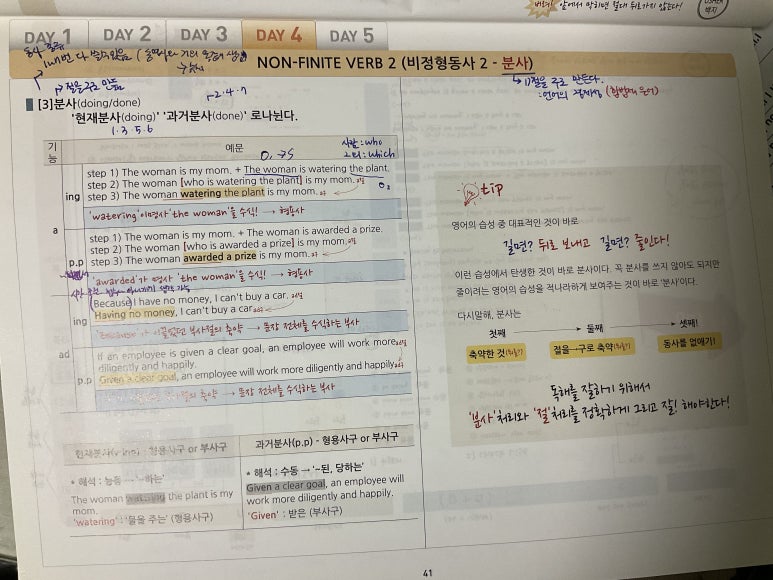 앞에서 막히면 절대 뒤로가지 않는다!
DAY 1 DAY 2 DAY 3 DAY 4 DAY 5
NON-FINITE VERB 2 (비정형동사 2 - 분사)
절을 구로 만듦
→ 1)절을 구로 만든다.
: 언어의 경제성
[3]분사(doing/done)
→2.4.7
'현재분사(doing)' '과거분사(done)' 로나뉜다.
1.3.5.6
기능
예문
사람:who
그외:which
a
ing
step 1) The woman is my mom. + The woman is watering the plant.
step 2) The woman [who is watering the plant] is my mom.
step 3) The woman watering the plant is my mom.
'watering'이 명사 'the woman'을 수식! → 형용사
p.p
step 1) The woman is my mom. + The woman is awarded a prize.
step 2) The woman [who is awarded a prize] is my mom.
step 3) The woman awarded a prize is my mom.
'awarded'가 명사 'the woman'을 수식! → 형용사
ad
ing
Because I have no money, I can't buy a car.
Having no money, I can't buy a car
부사절의 축약 → 문장 전체를 수식하는 부사
p.p
If an employee is given a clear goal, an employee will work more
diligently and happily.
Given a clear goal, an employee will work more diligently and happily.
축약 → 문장 전체를 수식하는 부사
현재분사(v-ing) - 형용사구 or 부사구
과거분사(p.p) - 형용사구 or 부사구
• 해석 : 능동 → '~하는'
The woman watering the plant is my
mom.
'watering' : '물을 주는' (형용사구)
• 해석 : 수동 → '~된, 당하는'
Given a clear goal, an employee will
work more diligently and happily.
'Given' : 받은 (부사구)
tip
영어의 습성 중 대표적인 것이 바로
길면? 뒤로 보내고 길면? 줄인다!
이런 습성에서 탄생한 것이 바로 분사이다. 꼭 분사를 쓰지 않아도 되지만
줄이려는 영어의 습성을 적나라하게 보여주는 것이 바로 '분사'이다.
다시말해, 분사는
첫째 → 둘째 → 셋째!
축약한 것 절을→구로 축약 동사를 없애기!
독해를 잘하기 위해서
'분사'처리와 '절'처리를 정확하게 그리고 잘! 해야한다!
41